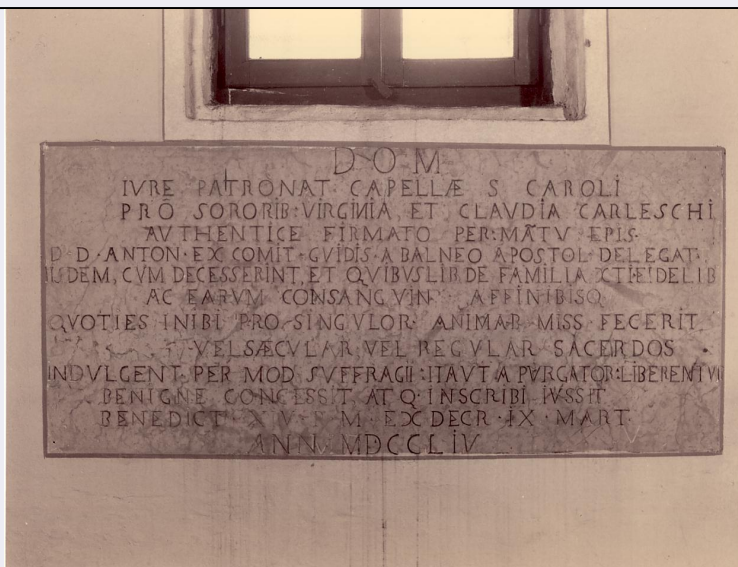 D·O·M
IVRE PATRONAT· CAPELLÆ S CAROLI
PRŌ SORORIB·VIRGINIA, ET CLAVDIA CARLESCHI
AVTHENTICE FIRMATO PER·MĀTV EPIS·
D D·ANTON·EX COMIT·GVIDIS·A BALNEO APOSTOL·DELEGAT·
IISDEM, CVM DECESSERINT, ET QVIBVSLIB DE FAMILIA XTI FIDELIB
AC EARVM CONSANGVIN· AFFINIBISQ
QVOTIES INIBI PRO SINGVLOR· ANIMAR MISS·FECERIT
VEL SÆCVLAR VEL REGVLAR SACERDOS
INDVLGENT·PER MOD SVFFRAGII:ITAVT A PVRGATOR:LIBERENTVR
BENIGNE CONCESSIT, ATQ·INSCRIBI IVSSIT
BENEDICT·XIV·P M·EX DECR·IX·MART·
ANN·MDCCLIV